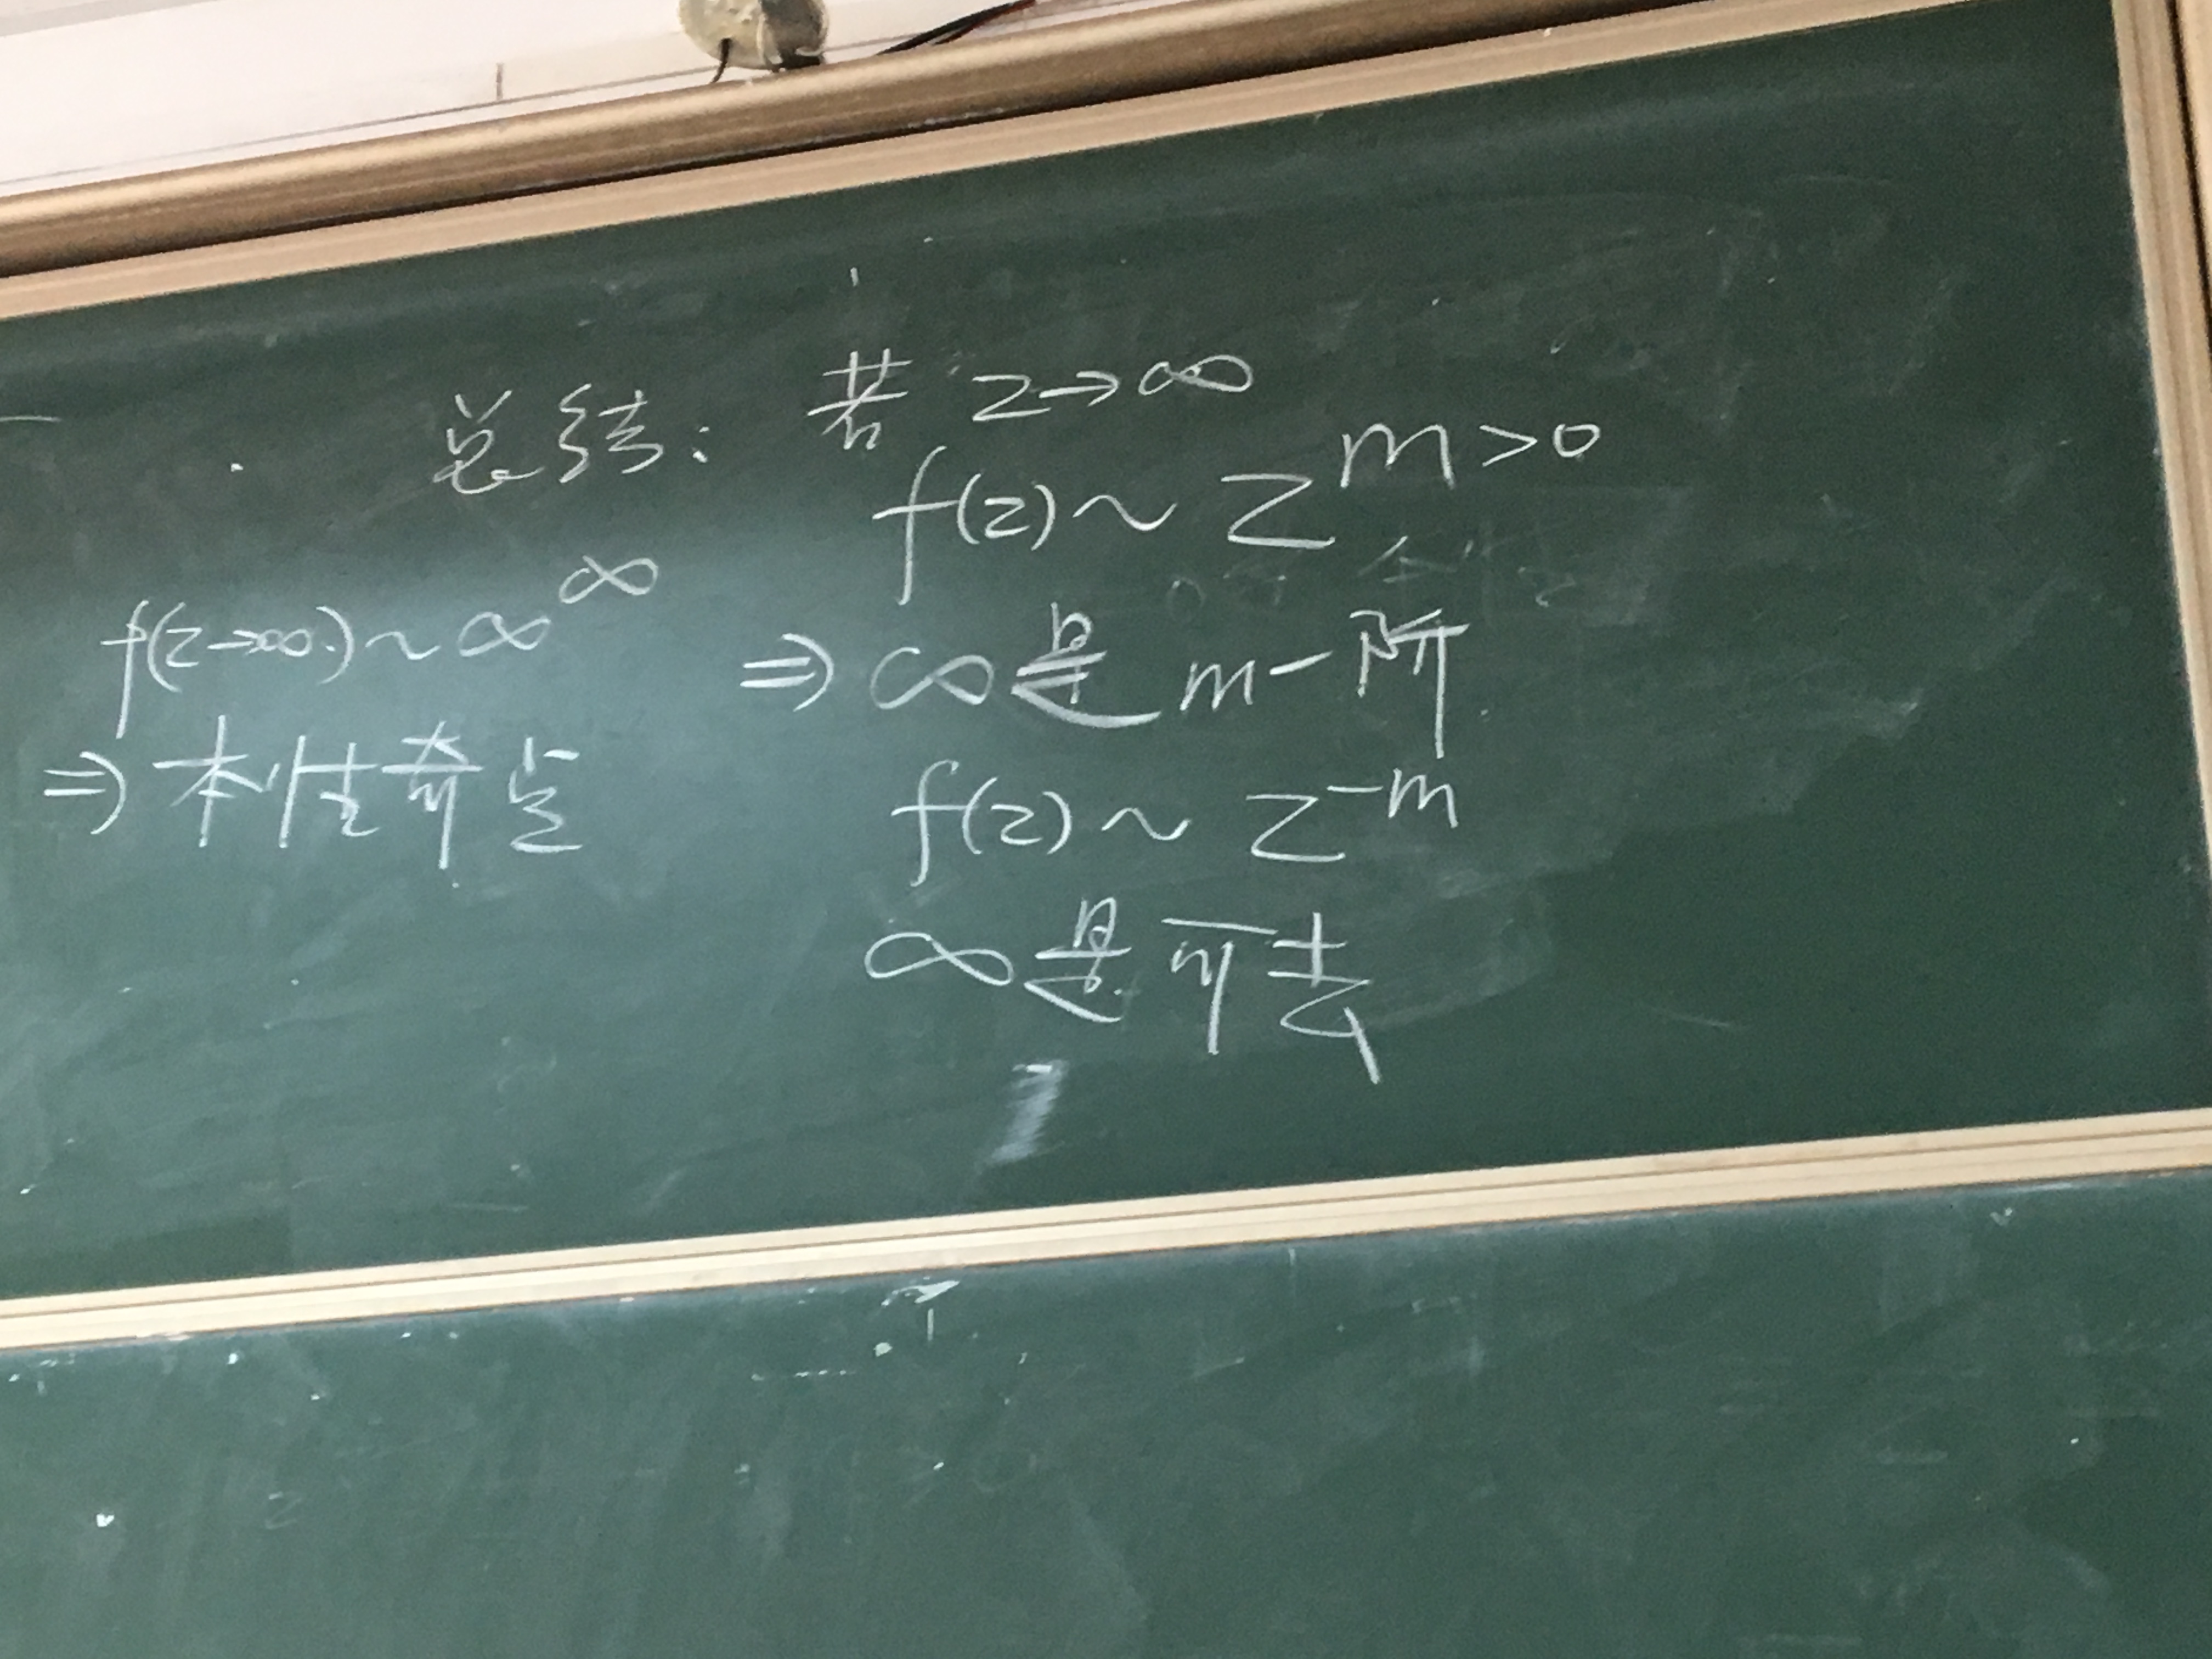 总结: 若 z→∞
f(z) ~ z^{m>0}
⇒ ∞是 m-阶
f(z) ~ z^{-m}
∞是可去
f(z→∞) ~ ∞^∞
⇒ 本性奇点